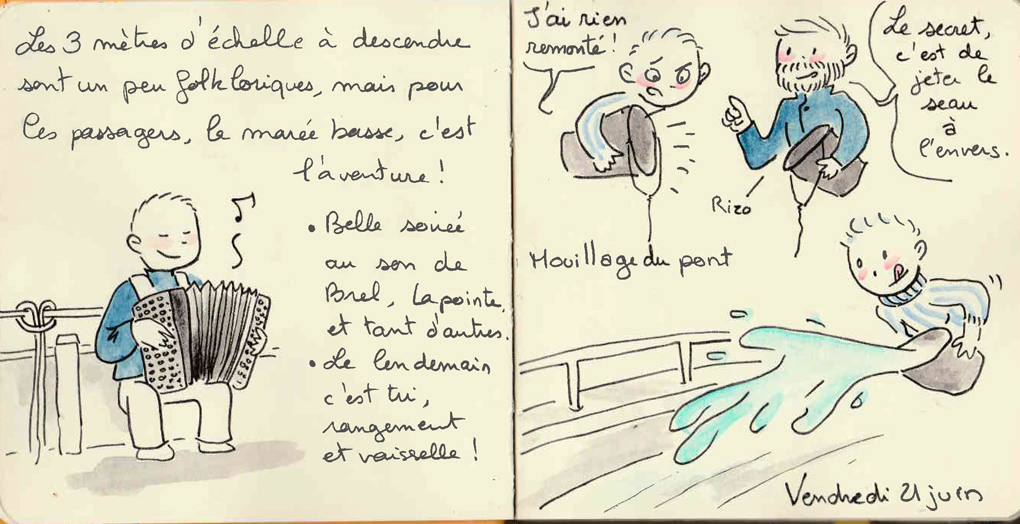 Les 3 mètres d'échelle à descendre
sont un peu folkloriques, mais pour
les passagers, la marée basse, c'est
l'aventure !
• Belle soirée
au son de
Brel, Lapointe,
et tant d'autres.
• Le lendemain
c'est tri,
rangement
et vaisselle !
J'ai rien
remonté !
Le secret,
c'est de
jeter le
seau
à
l'envers.
Rizo
Mouillage du pont
Vendredi 21 juin